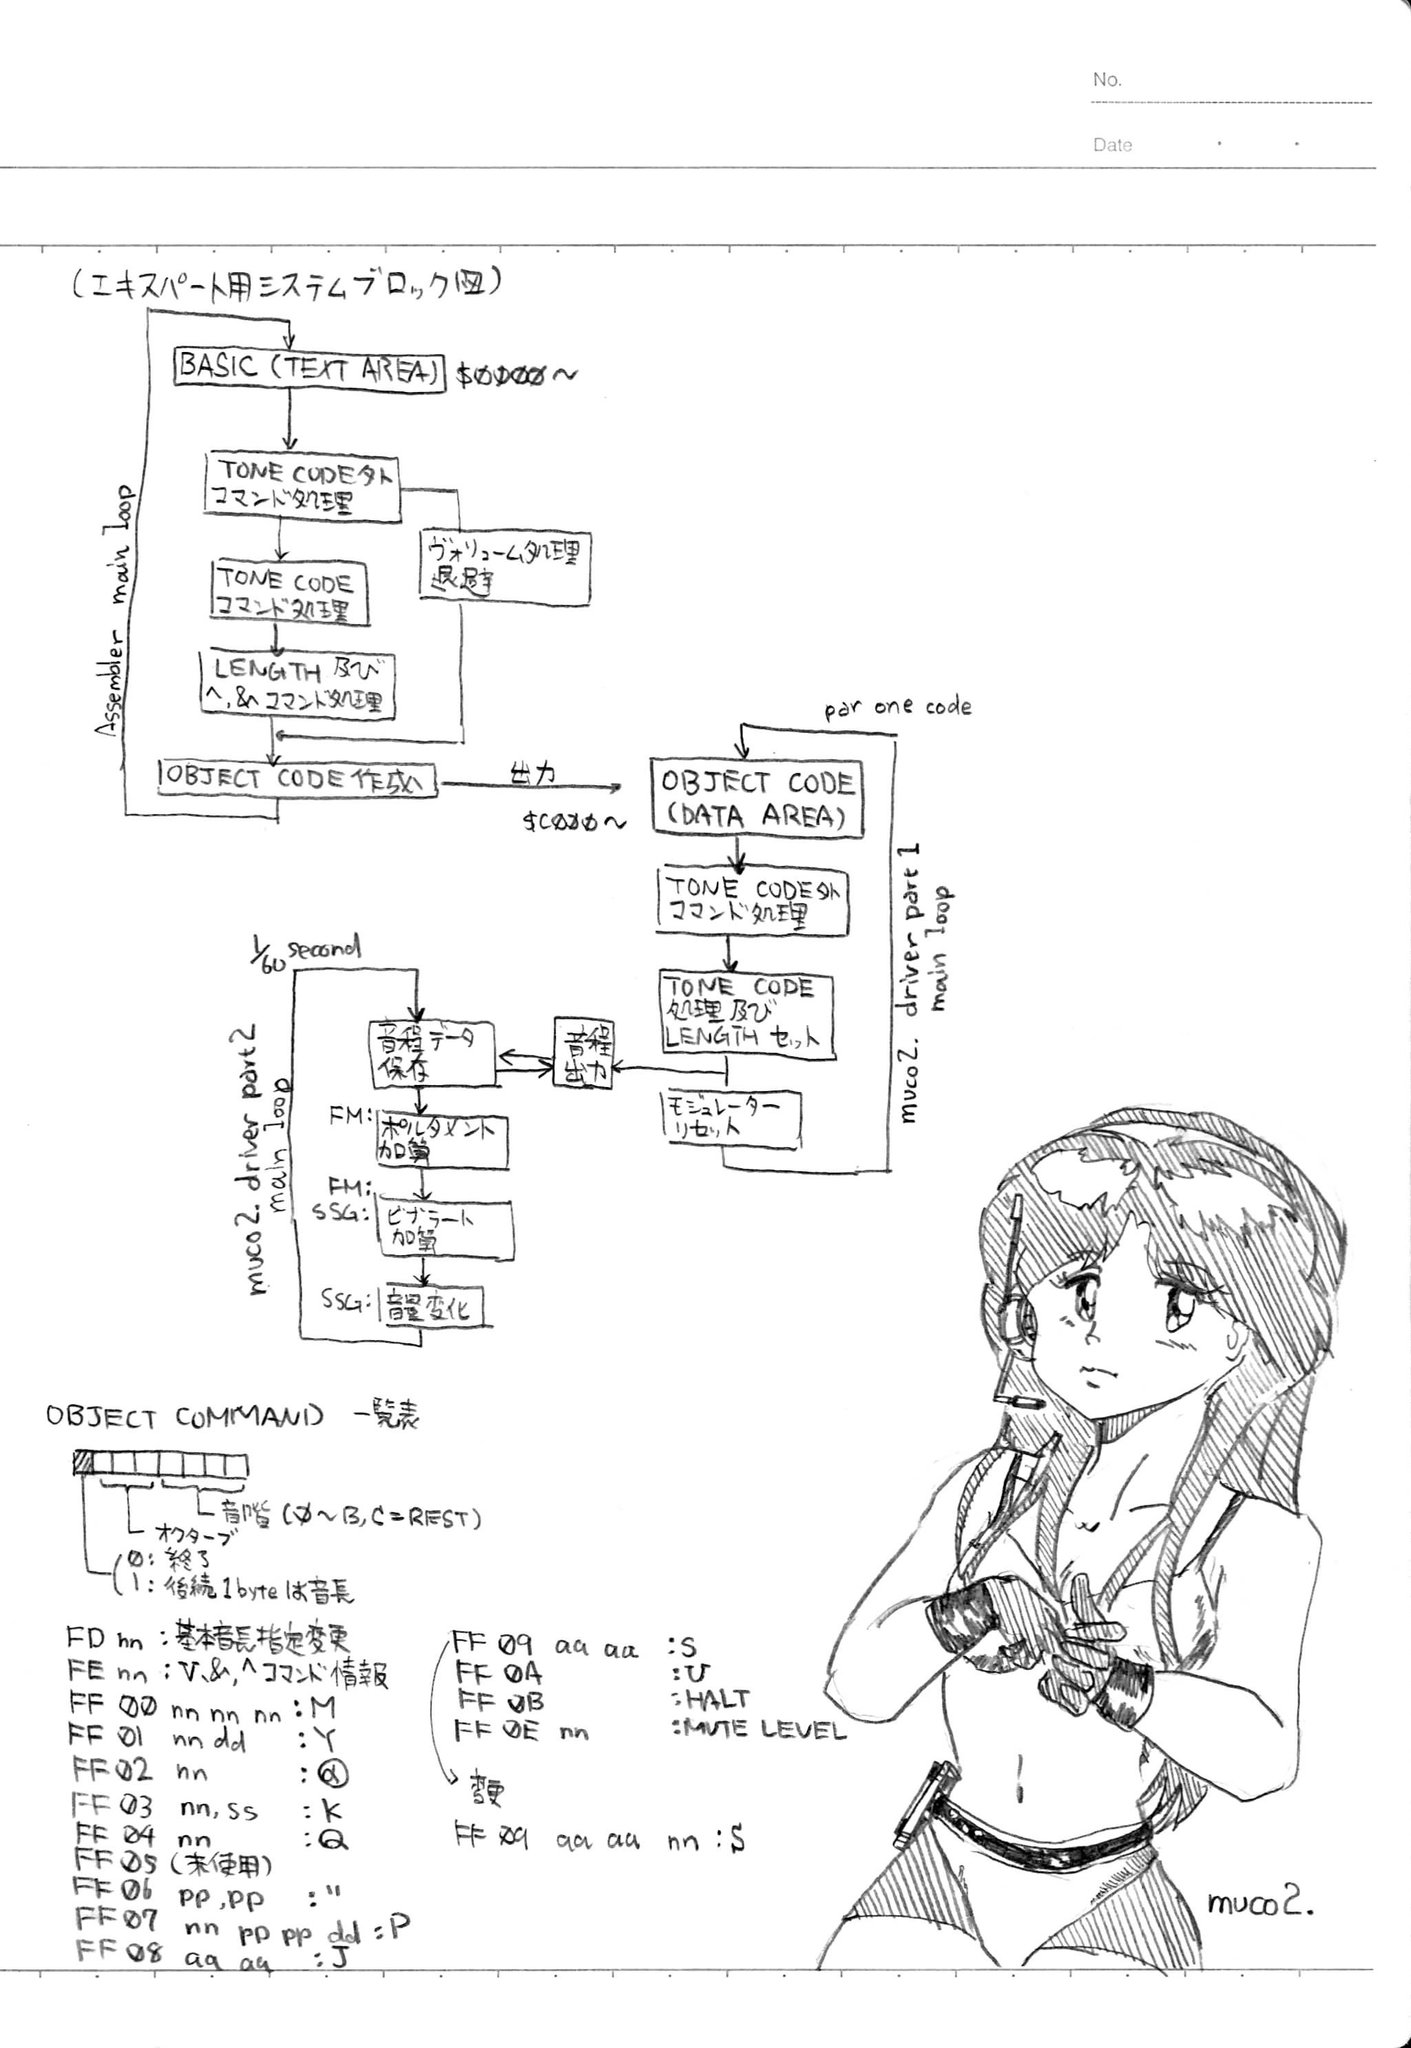 No.
Date
(エキスパート用システムブロック図)
BASIC (TEXT AREA) $0000~
TONE CODE外
コマンド処理
ヴォリューム処理
退避
TONE CODE
コマンド処理
LENGTH 及び
^,&コマンド処理
OBJECT CODE作成
Assembler main loop
出力
$C000~
par one code
OBJECT CODE
(DATA AREA)
TONE CODE外
コマンド処理
TONE CODE
処理及び
LENGTH セット
モジュレーター
リセット
muco2. driver part 1
main loop
1/60 second
音程データ
保存
音程
出力
FM:
ポルタメント
加算
FM:
SSG:
ビブラート
加算
SSG:
音量変化
muco2. driver part2
main loop
OBJECT COMMAND 一覧表
音階 (0~B, C=REST)
オクターブ
0: 終了
1: 後続1byteは音長
FD nn :基本音長指定変更
FE nn :V,&,^コマンド情報
FF 00 nn nn nn :M
FF 01 nn dd :Y
FF 02 nn :@
FF 03 nn,ss :K
FF 04 nn :Q
FF 05 (未使用)
FF 06 pp,pp :"
FF 07 nn pp pp dd :P
FF 08 aa aa :J
FF 09 aa aa :S
FF 0A :U
FF 0B :HALT
FF 0E nn :MUTE LEVEL
変更
FF 09 aa aa nn :S
muco2.